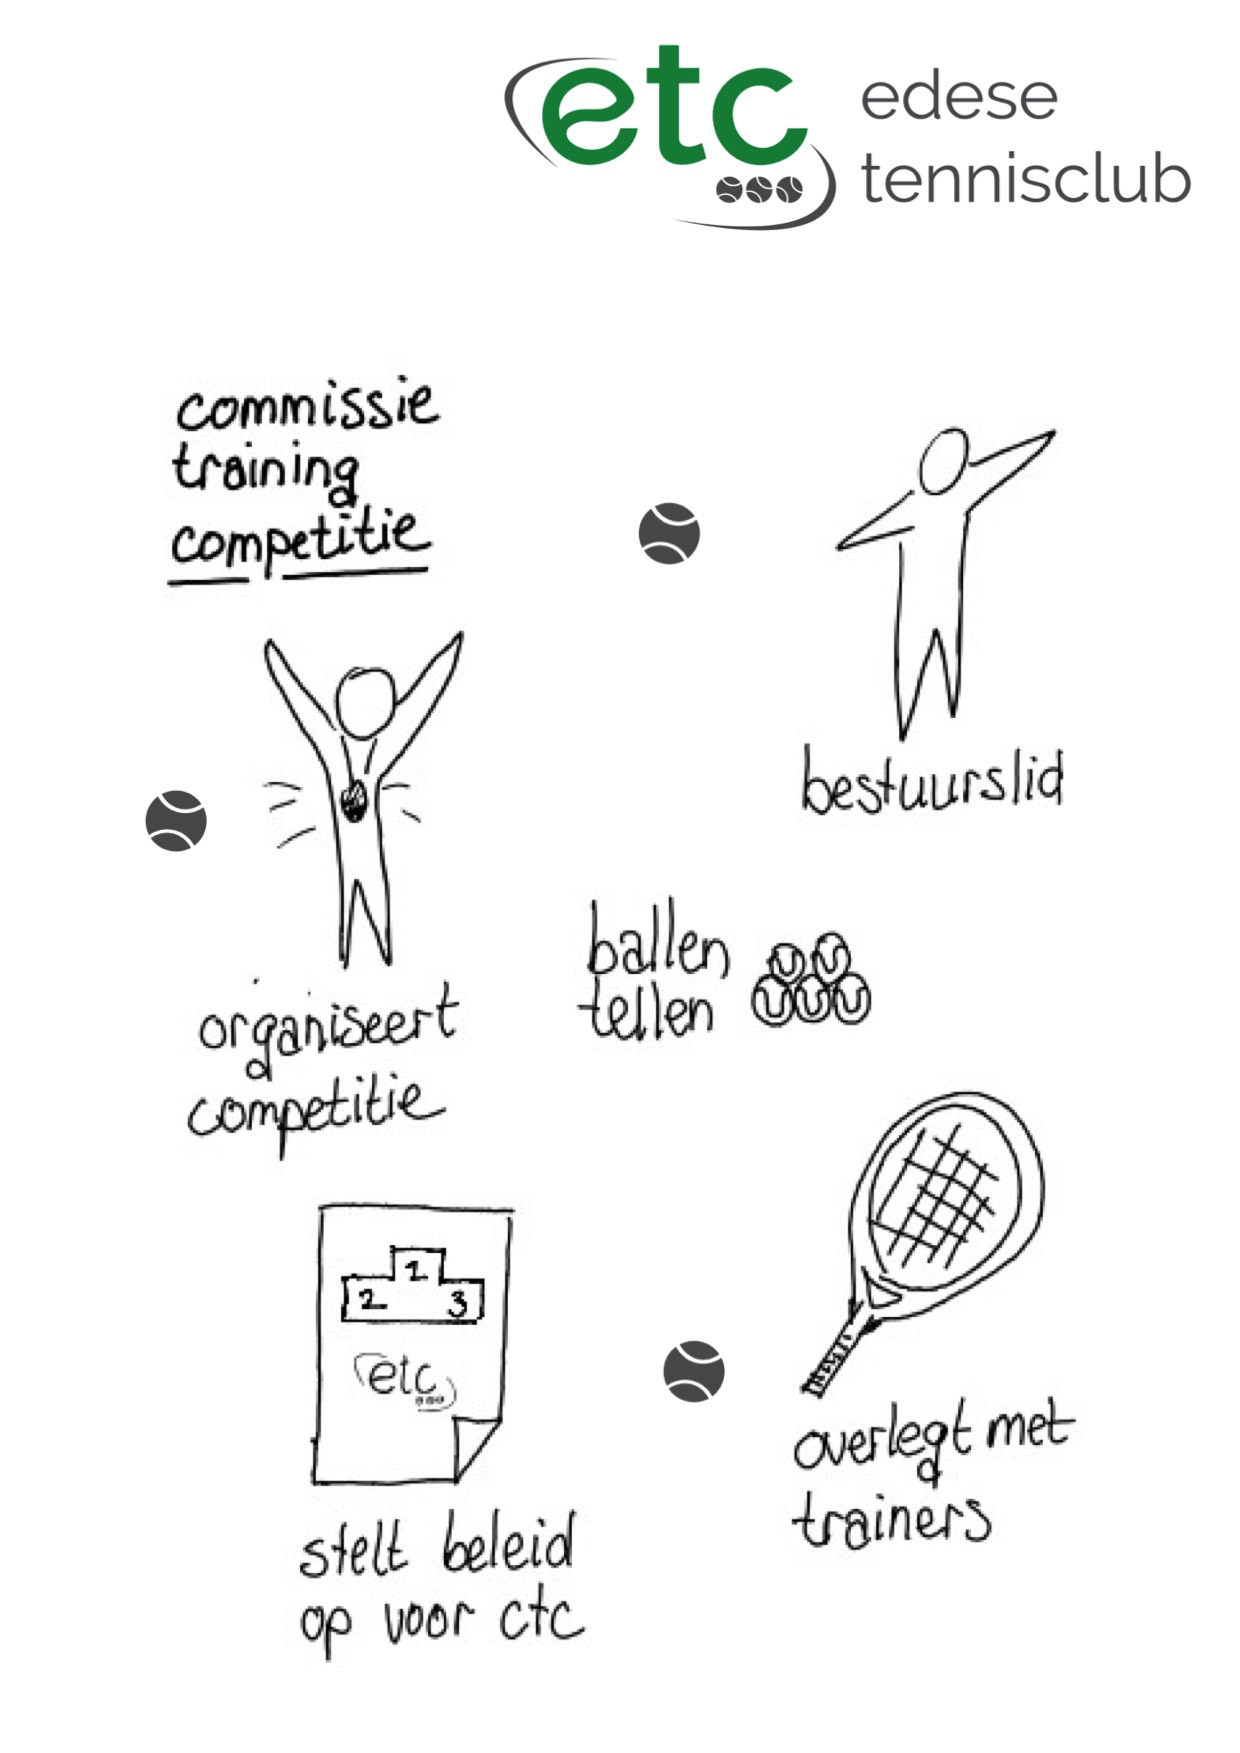 etc
edese
tennisclub
commissie
training
competitie
bestuurslid
organiseert
competitie
ballen
tellen
1
2 3
etc
stelt beleid
op voor ctc
overlegt met
trainers